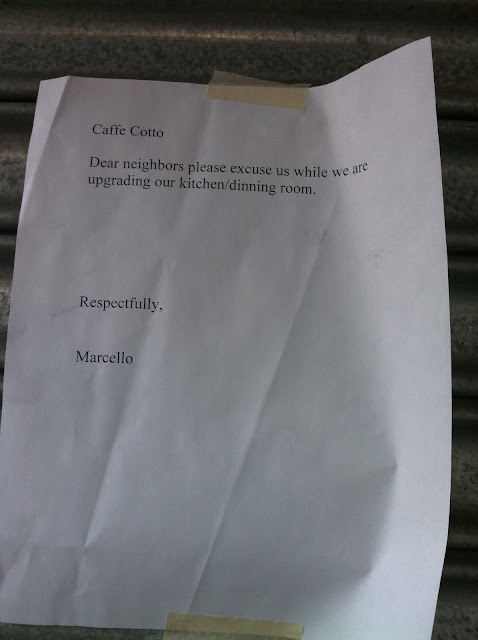 Caffe Cotto
Dear neighbors please excuse us while we are
upgrading our kitchen/dinning room.
Respectfully,
Marcello